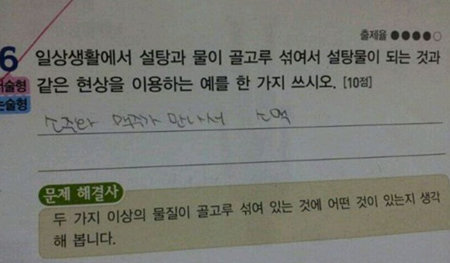 출제율 ●●●●○
6 일상생활에서 설탕과 물이 골고루 섞여서 설탕물이 되는 것과
서술형 같은 현상을 이용하는 예를 한 가지 쓰시오. [10점]
논술형
소주와 맥주가 만나서 소맥
문제 해결사
두 가지 이상의 물질이 골고루 섞여 있는 것에 어떤 것이 있는지 생각
해 봅니다.